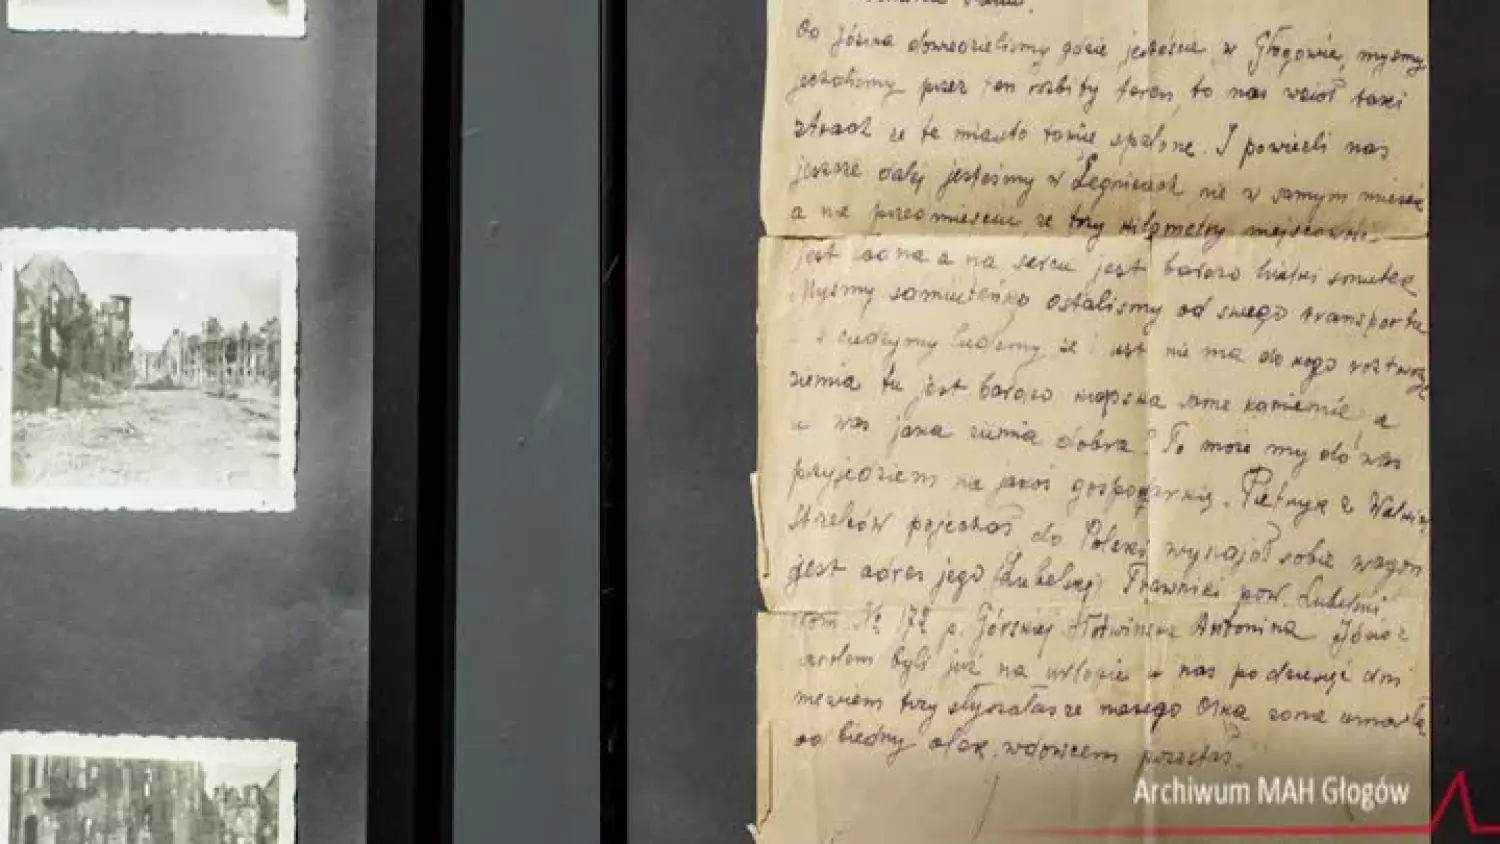 Od Józka dowiedzieliśmy gdzie jesteście, w Głogowie, myśmy
jechaliśmy przez ten rozbity teren, to nas wzioł taki
strach ze te miasto takie spalone. I powieźli nas
jeszcze dalej jesteśmy w Legnicach nie w samym mieście
a na przedmieściu, ze trzy kilometry miejscowość
jest ładna a na sercu jest bardzo wielki smutek
Myśmy samiuteńko ostaliśmy od swego transportu
z cudzymy ludzmy, że i nie ma do kogo
ziemia tu jest bardzo kiepska same kamienie a
u was jaka ziemia dobra? To może my do was
przyjedziem na jakoś gospodarkię. Pietryk z
pojechał do Polski wynajoł sobie wagon
jest adres jego (Lubelskej) Trawniki pow. Lubelski
dom № 172 p. Górskiej Antonina Józio z
byli już na urlopie u nas po dziesięć dni
nie wiem czy słyszałaś ze naszego Olka zona umarła
od biedny olek, wdowcem pozostał.
Archiwum MAH Głogów